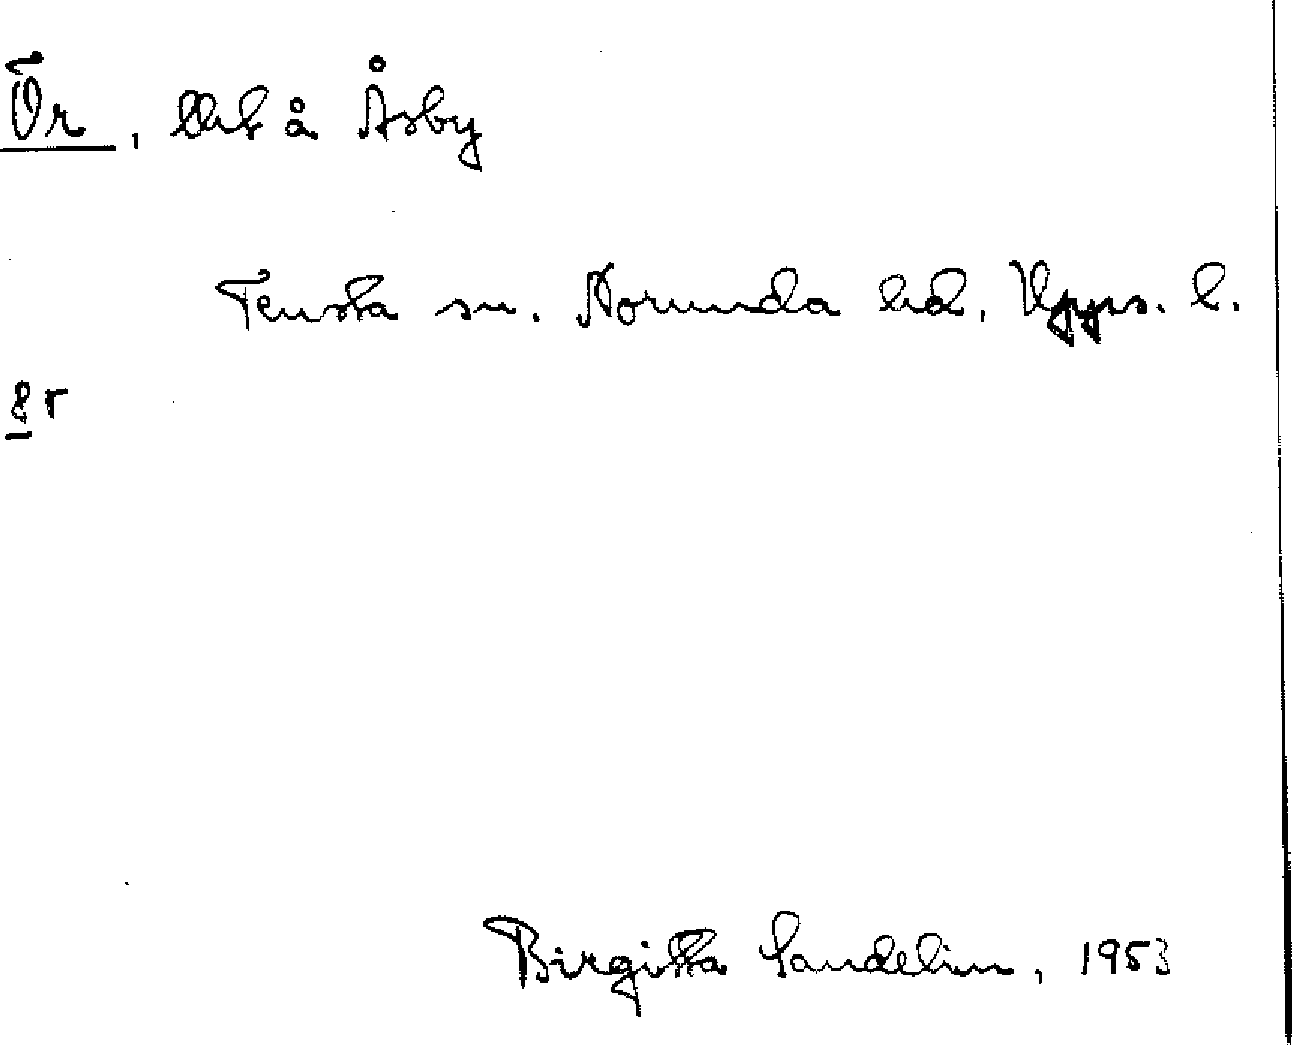 Ör, lht å Åsby
Tensta sn. Norunda hd, Upps. l.
Birgitta Sandelin, 1953